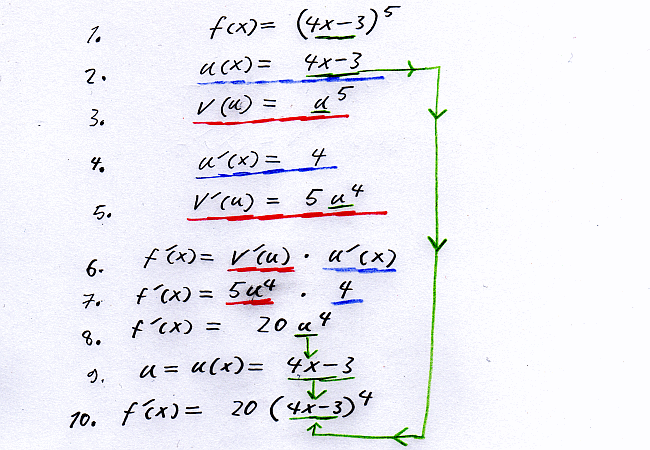 1. f(x) = (4x-3)^5
2. u(x) = 4x-3
3. v(u) = u^5
4. u´(x) = 4
5. v´(u) = 5 u^4
6. f´(x) = v´(u) · u´(x)
7. f´(x) = 5u^4 · 4
8. f´(x) = 20 u^4
9. u = u(x) = 4x-3
10. f´(x) = 20 (4x-3)^4